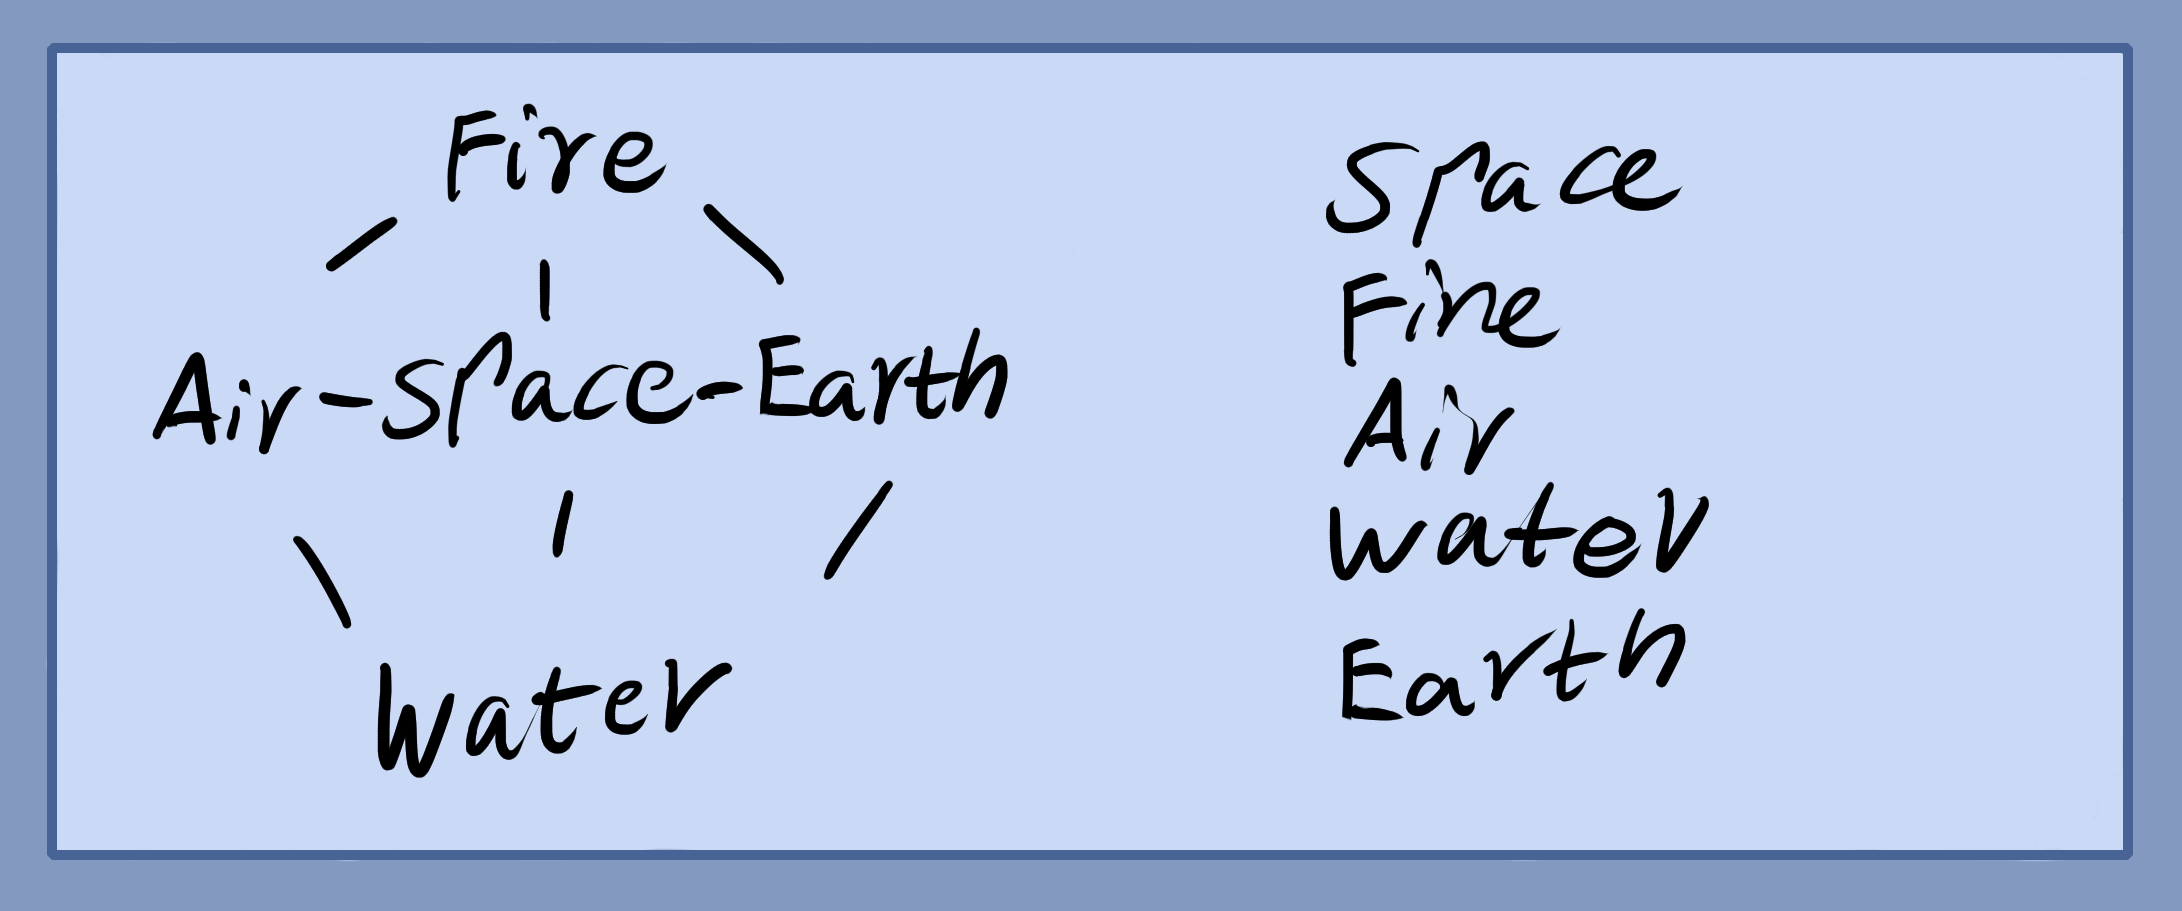 Fire
Air-Space-Earth
Water
Space
Fire
Air
Water
Earth